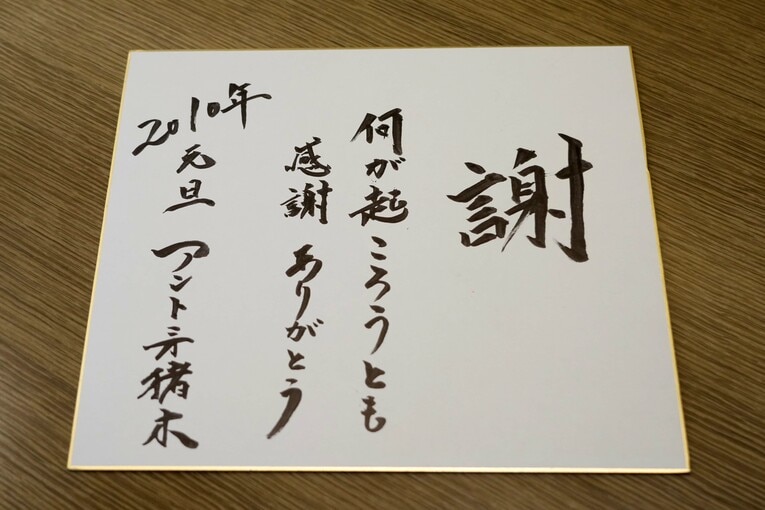 謝
何が起ころうとも
感謝 ありがとう
2010年 元旦 アントニオ猪木